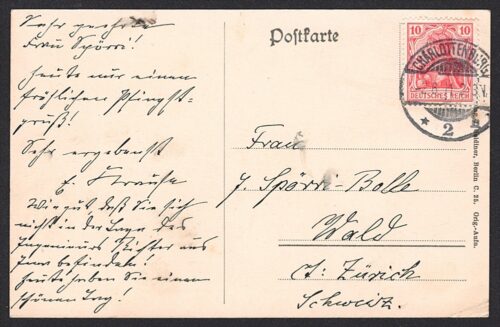 Sehr geehrte
Frau Spörri!
Heute nur einen
fröhlichen Pfingst-
gruß!
Sehr ergebenst
E. Krause
Wie gut, daß Sie sich
nicht in der Lage des
Ingenieurs Richter aus
Jena befinden!
Heute haben Sie einen
schönen Tag!
Postkarte
10 10
DEUTSCHES REICH
CHARLOTTENBURG
* 2
Frau
J. Spörri-Bolle
Wald
Ct. Zürich
Schweiz.
Berlin C. 25. Orig.-Aufn.